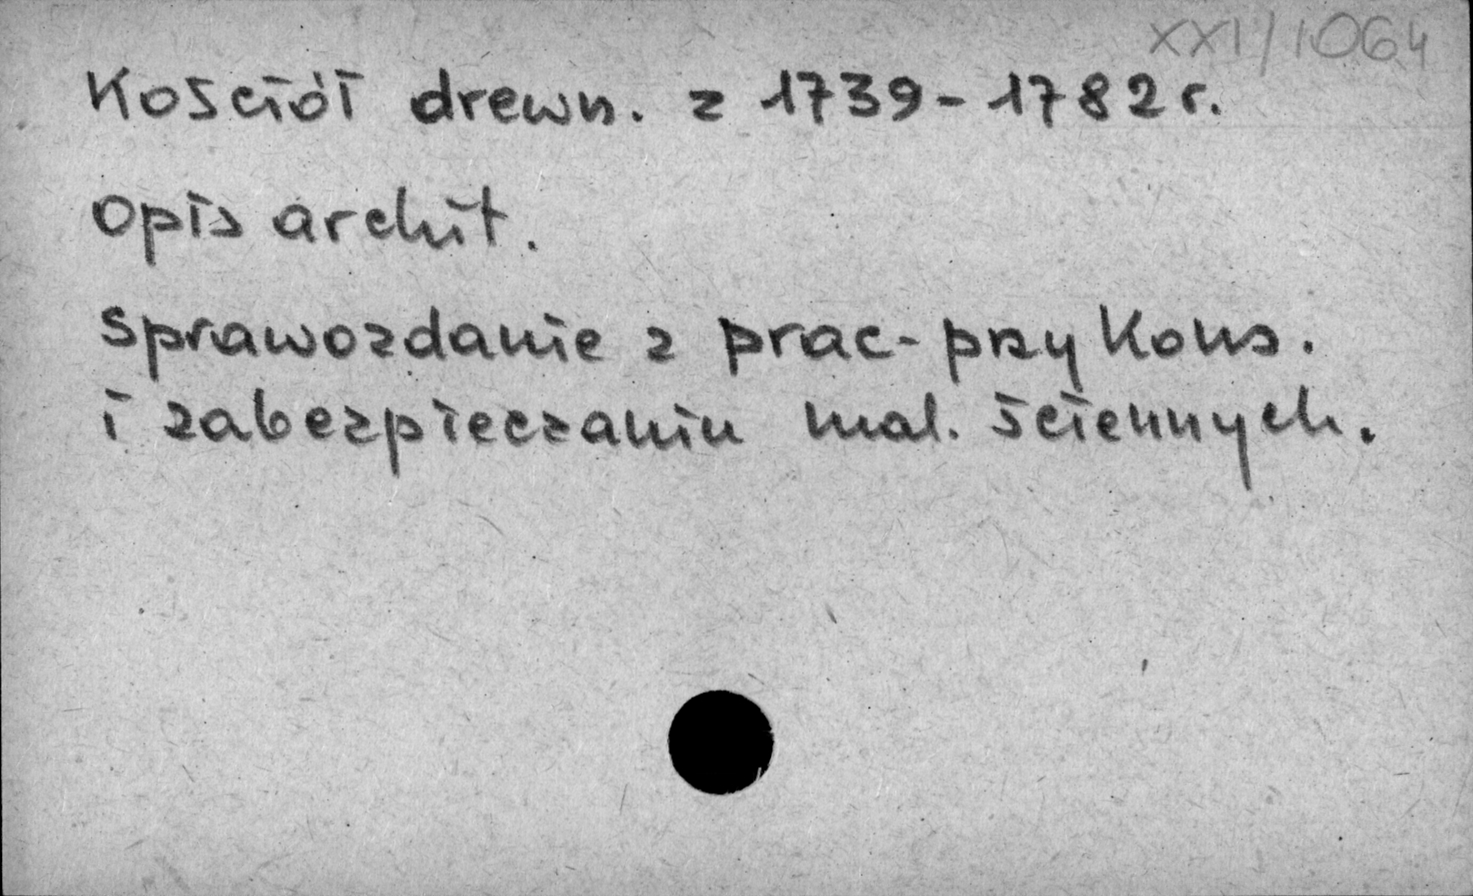 XXI/1064
Kościół drewn. z 1739-1782 r.
Opis archit.
Sprawozdanie z prac- przy kons.
i zabezpieczaniu mal. ściennych.